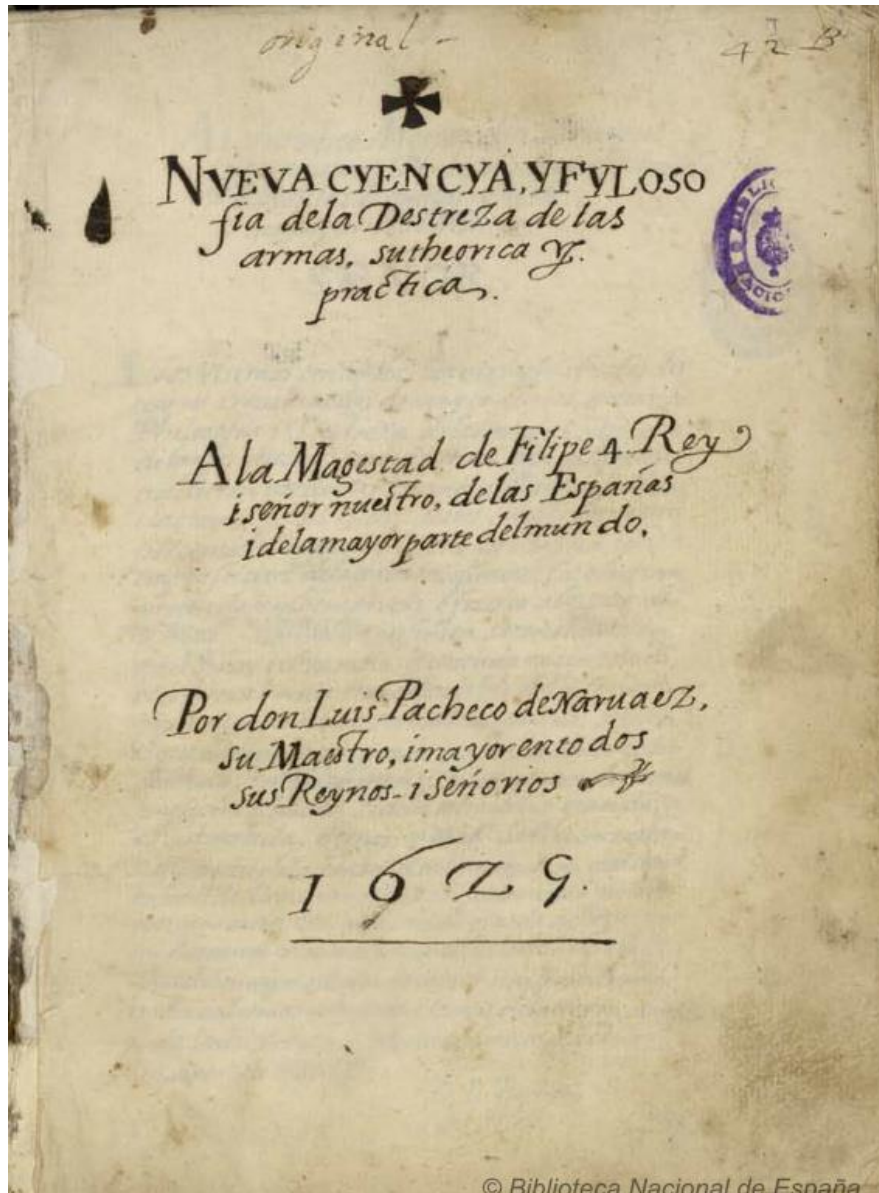 original -
42 B
NVEVA CYENCYA, YFYLOSO
fia dela Destreza de las
armas, sutheorica y.
practica.
A la Magestad de Filipe 4 Rey
i señor nuestro, delas Españas
i delamayor parte delmundo.
Por don Luis Pacheco de Naruaez,
su Maestro, imayor entodos
sus Reynos i Señorios
1629.
© Biblioteca Nacional de España